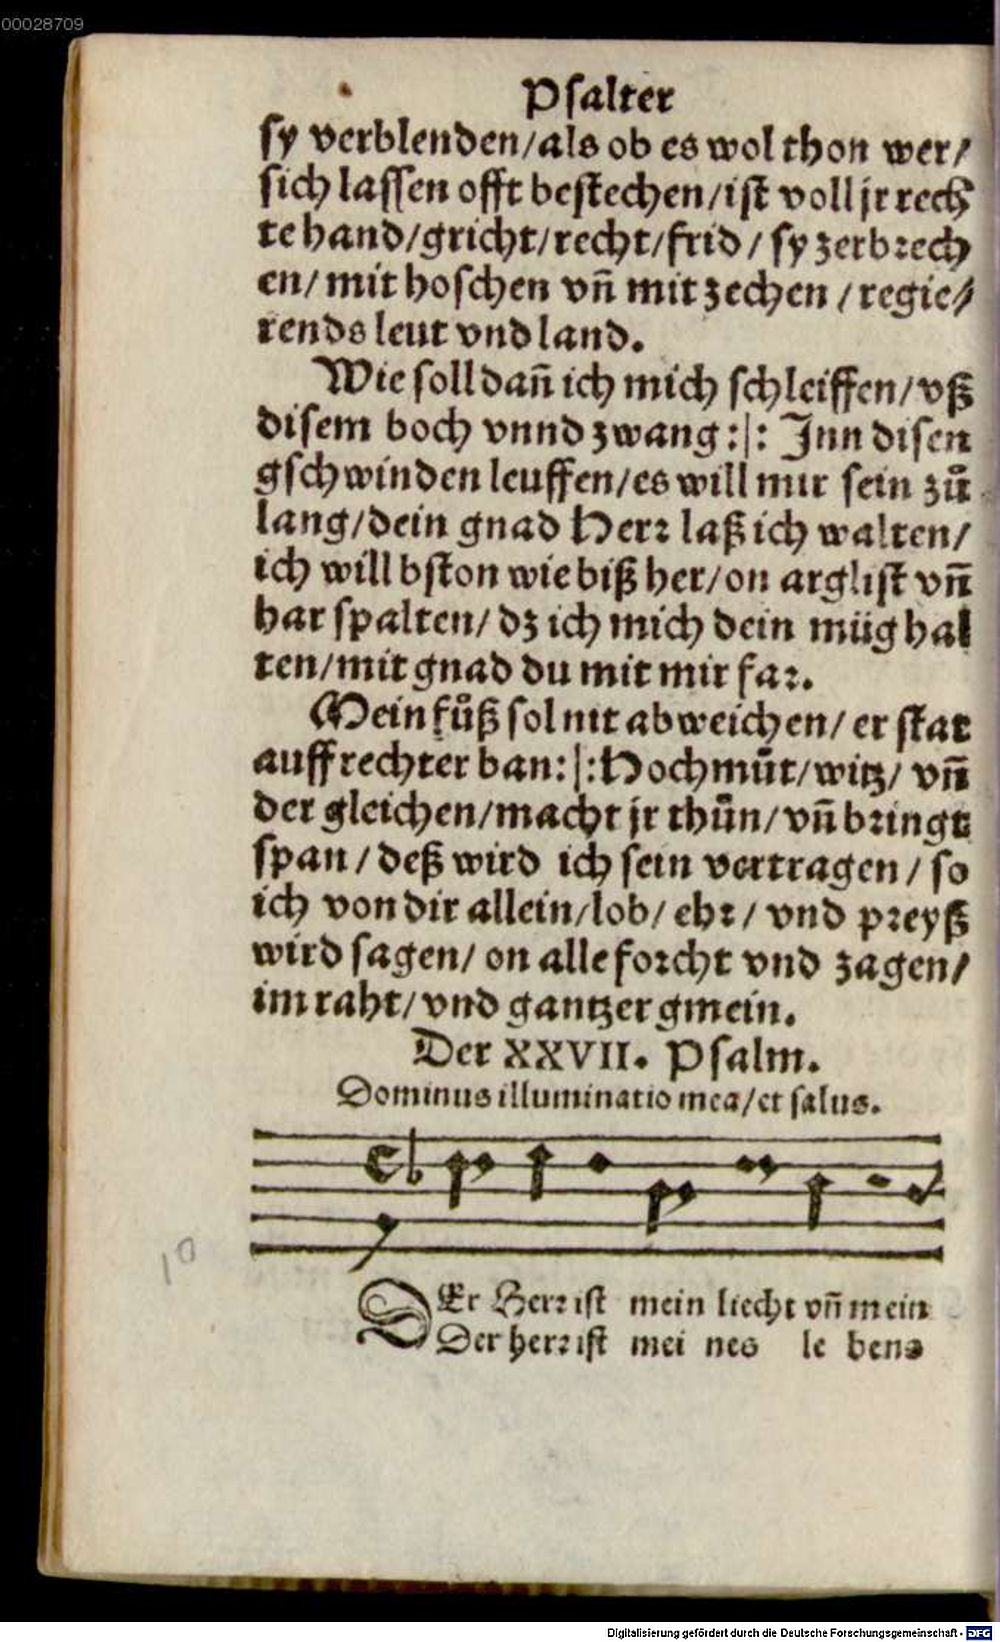 00028709
Psalter
sy verblenden/als ob es wol thon wer/
sich lassen offt bestechen/ist voll jr rech
te hand/gricht/recht/frid/ sy zerbrech
en/ mit hoschen vñ mit zechen /regie/
rends leut vnd land.
Wie soll dañ ich mich schleiffen/vß
disem boch vnnd zwang :|: Jnn disen
gschwinden leuffen/es will mir sein zů
lang/dein gnad Herr laß ich walten/
ich will bston wie biß her/on arglist vñ
har spalten/ dz ich mich dein müg hal
ten/mit gnad du mit mir far.
Mein fůß sol nit abweichen/ er stat
auff rechter ban:|:Hochmůt/witz/ vñ
der gleichen/macht jr thůn/vñ bringt
span/ deß wird ich sein vertragen/ so
ich von dir allein/lob/ ehr/ vnd preyß
wird sagen/ on alle forcht vnd zagen/
im raht/vnd gantzer gmein.
Der XXVII. Psalm.
Dominus illuminatio mea/et salus.
DEr Herr ist mein liecht vñ mein
Der herr ist mei nes le bens
10
Digitalisierung gefördert durch die Deutsche Forschungsgemeinschaft - DFG